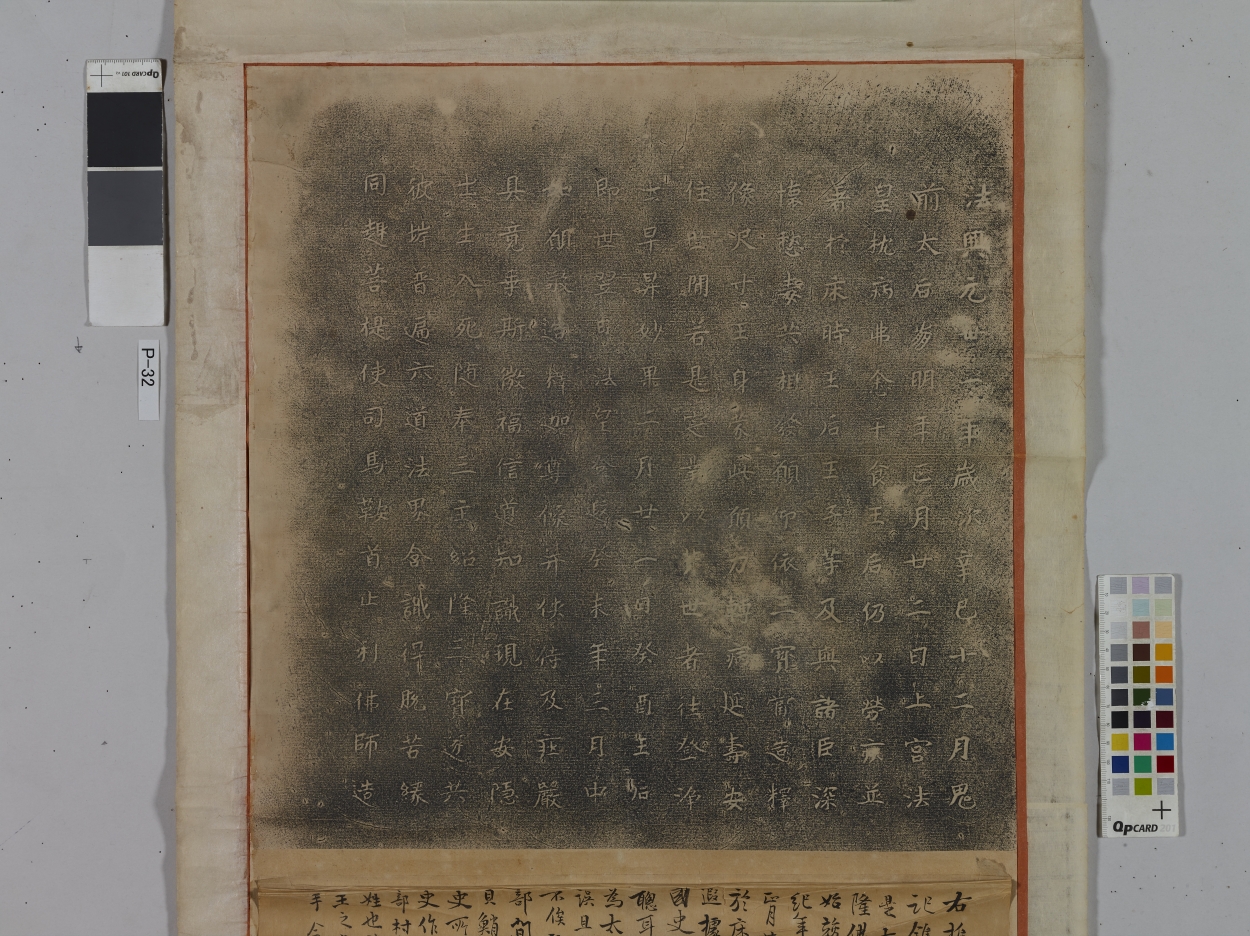 法興元丗一年歳次辛巳十二月鬼
前太后崩明年正月廿二日上宮法
皇枕病弗悆干食王后仍以勞疾並
著於床時王后王子等及與諸臣深
懐愁毒共相發願仰依三寳當造釋
像尺寸王身蒙此願力轉病延壽安
住世間若是定業以背世者往登浄
土早昇妙果二月廿一日癸酉王后
即世翌日法皇登遐癸未年三月中
如願敬造釋迦尊像并侠侍及荘嚴
具竟乗斯微福信道知識現在安隠
出生入死随奉三主紹隆三寳遂共
彼岸普遍六道法界含識得脱苦縁
同趣菩提使司馬鞍首止利佛師造
右
記
是
隆佛
始
紀年
正月
於床
遐據
國史
聰耳
為太
誤且
不俟
部間
貝鮹
史所
史作
部村
姓也
王之
手
QpCARD 101
P-32
QpCARD 201